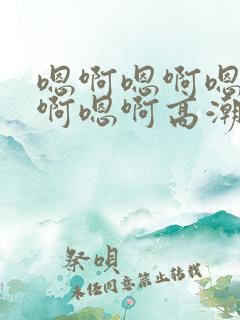 嗯啊嗯啊嗯
啊嗯啊高潮
祭唄
未经同意禁止转载